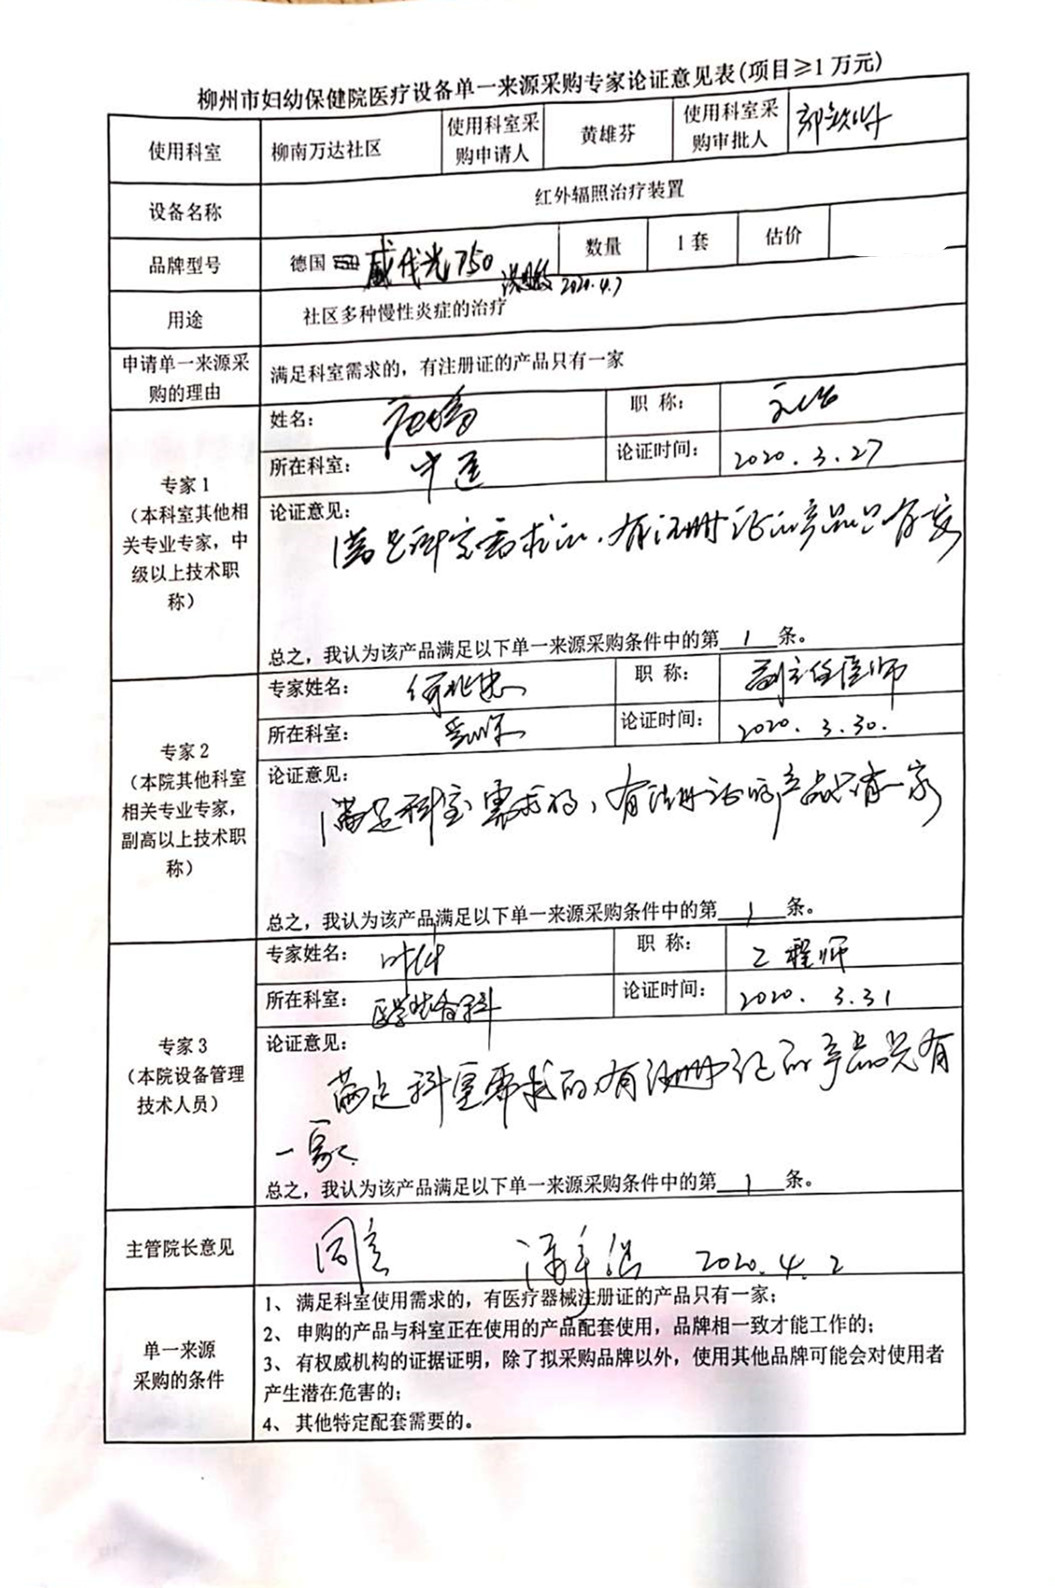 柳州市妇幼保健院医疗设备单一来源采购专家论证意见表(项目≥1万元)
使用科室 柳南万达社区 使用科室采购申请人 黄雄芬 使用科室采购审批人
设备名称 红外辐照治疗装置
品牌型号 德国 威伐光750 数量 1套 估价
2020.4.7
用途 社区多种慢性炎症的治疗
申请单一来源采购的理由 满足科室需求的，有注册证的产品只有一家
专家1
（本科室其他相关专业专家，中级以上技术职称）
姓名： 职 称：
所在科室： 中医 论证时间： 2020.3.27
论证意见：
满足科室需求的，有注册证的产品只有一家
总之，我认为该产品满足以下单一来源采购条件中的第1条。
专家2
（本院其他科室相关专业专家，副高以上技术职称）
专家姓名： 职 称： 副主任医师
所在科室： 论证时间： 2020.3.30.
论证意见：
满足科室需求的，有注册证的产品只有一家
总之，我认为该产品满足以下单一来源采购条件中的第1条。
专家3
（本院设备管理技术人员）
专家姓名： 职 称： 工程师
所在科室： 医学装备科 论证时间： 2020.3.31
论证意见：
满足科室需求的，有注册证的产品只有
一家
总之，我认为该产品满足以下单一来源采购条件中的第1条。
主管院长意见 同意 2020.4.2
单一来源采购的条件
1、满足科室使用需求的，有医疗器械注册证的产品只有一家；
2、申购的产品与科室正在使用的产品配套使用，品牌相一致才能工作的；
3、有权威机构的证据证明，除了拟采购品牌以外，使用其他品牌可能会对使用者
产生潜在危害的；
4、其他特定配套需要的。